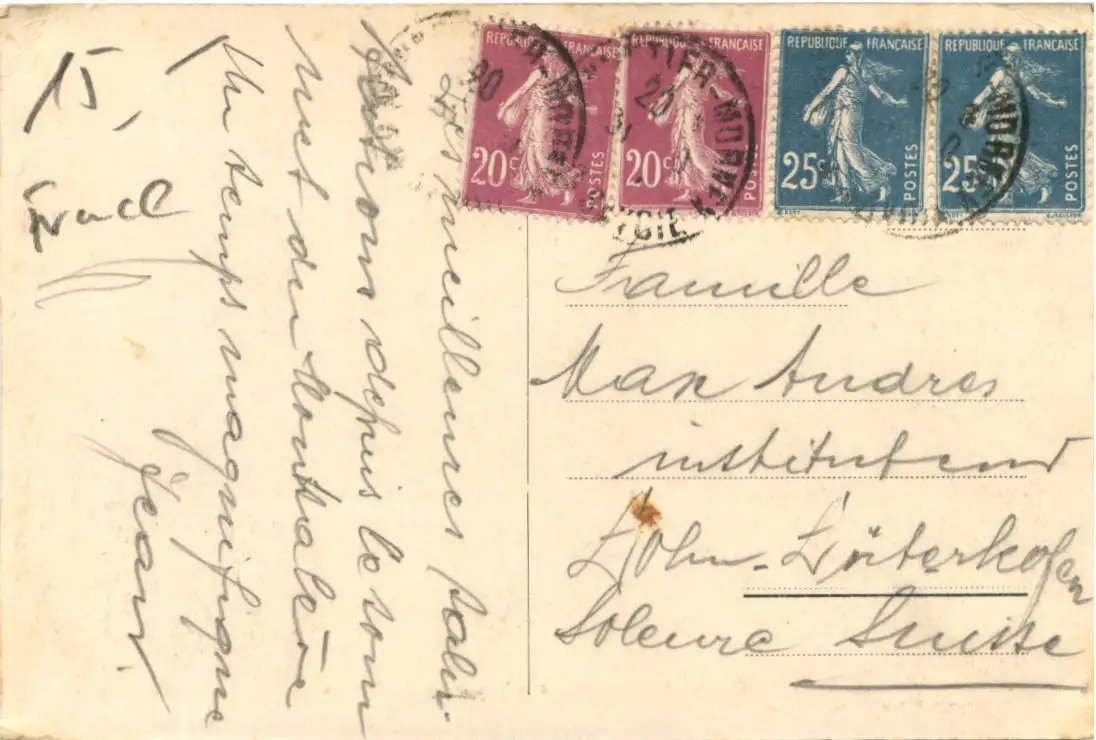 15,
France
REPUBLIQUE FRANÇAISE
20c
POSTES
REPUBLIQUE FRANÇAISE
20c
POSTES
REPUBLIQUE FRANÇAISE
25c
POSTES
REPUBLIQUE FRANÇAISE
25c
POSTES
Les meilleures salu-
tations depuis le som
met du Montvalezan
Un temps magnifique
Jean
Famille
Max Andres
instituteur
Lohn-Lüterkofen
Soleure Suisse